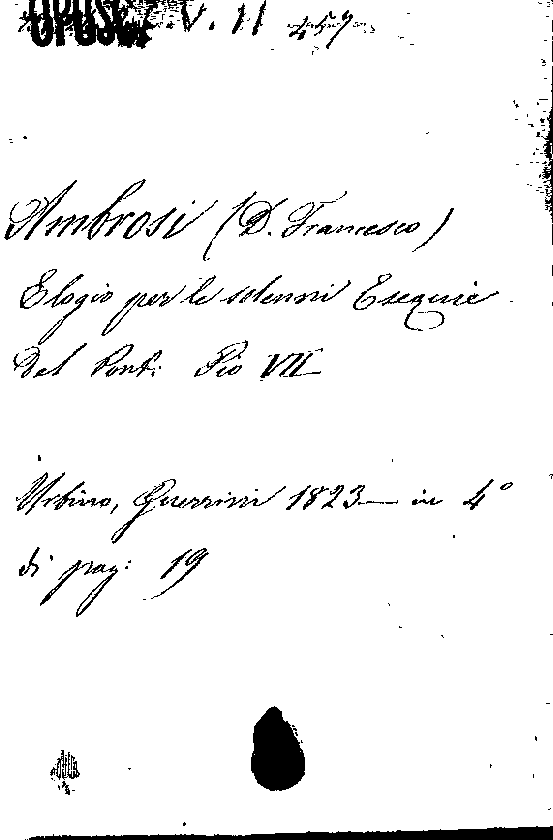 OPUSC. V. 11 457
Ambrosi (D. Francesco)
Elogio per le solenni Esequie
del Pont: Pio VII
Urbino, Guerrini 1823— in 4°
di pag: 19